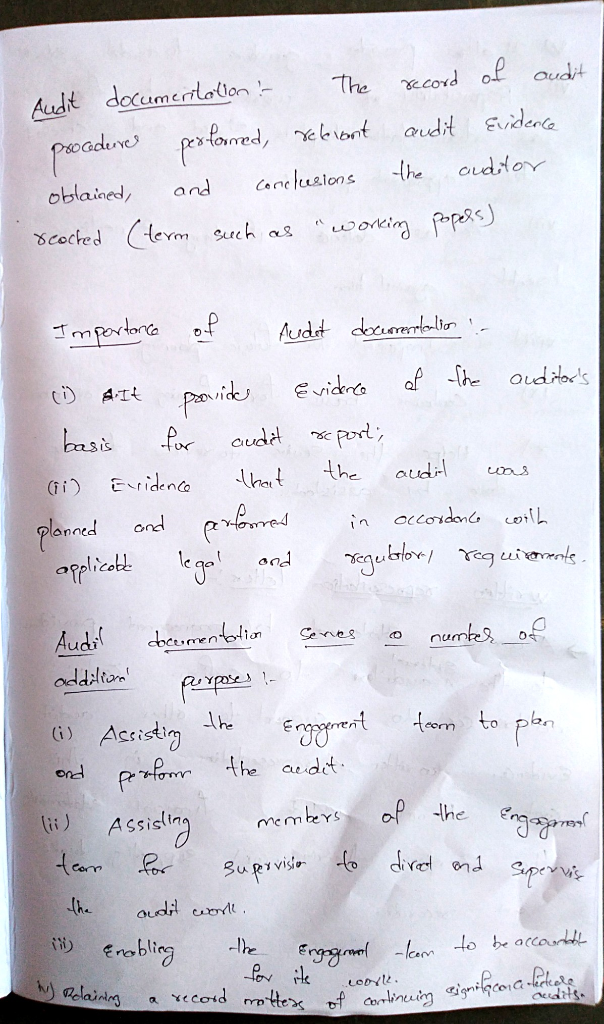 Audit documentation :- The record of audit
procedures performed, relevant audit Evidence
obtained, and conclusions the auditor
reached (term such as "working papers)
Importance of Audit documentation :-
(i) It provides Evidence of the auditor's
basis for audit report;
(ii) Evidence that the audit was
planned and performed in accordance with
applicable legal and regulatory requirements.
Audit documentation serves a number of
additional purposes :-
(i) Assisting the Engagement team to plan
and perform the audit.
(ii) Assisting members of the Engagement
team for supervision to direct and supervis
the audit work.
iii) Enabling the Engagement team to be accountable
for its work.
iv) Retaining a record matters of continuing significance future
audits.